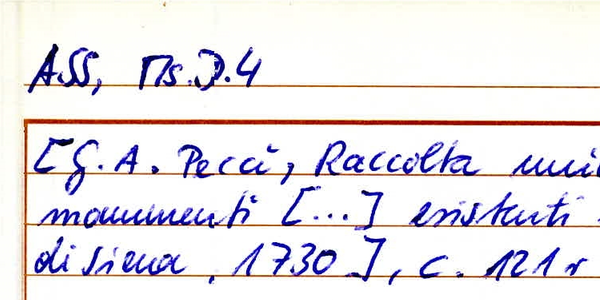 ASS, Ms. D. 4
[G. A. Pecci, Raccolta
monumenti [...] esistenti
di Siena, 1730], c. 121 r